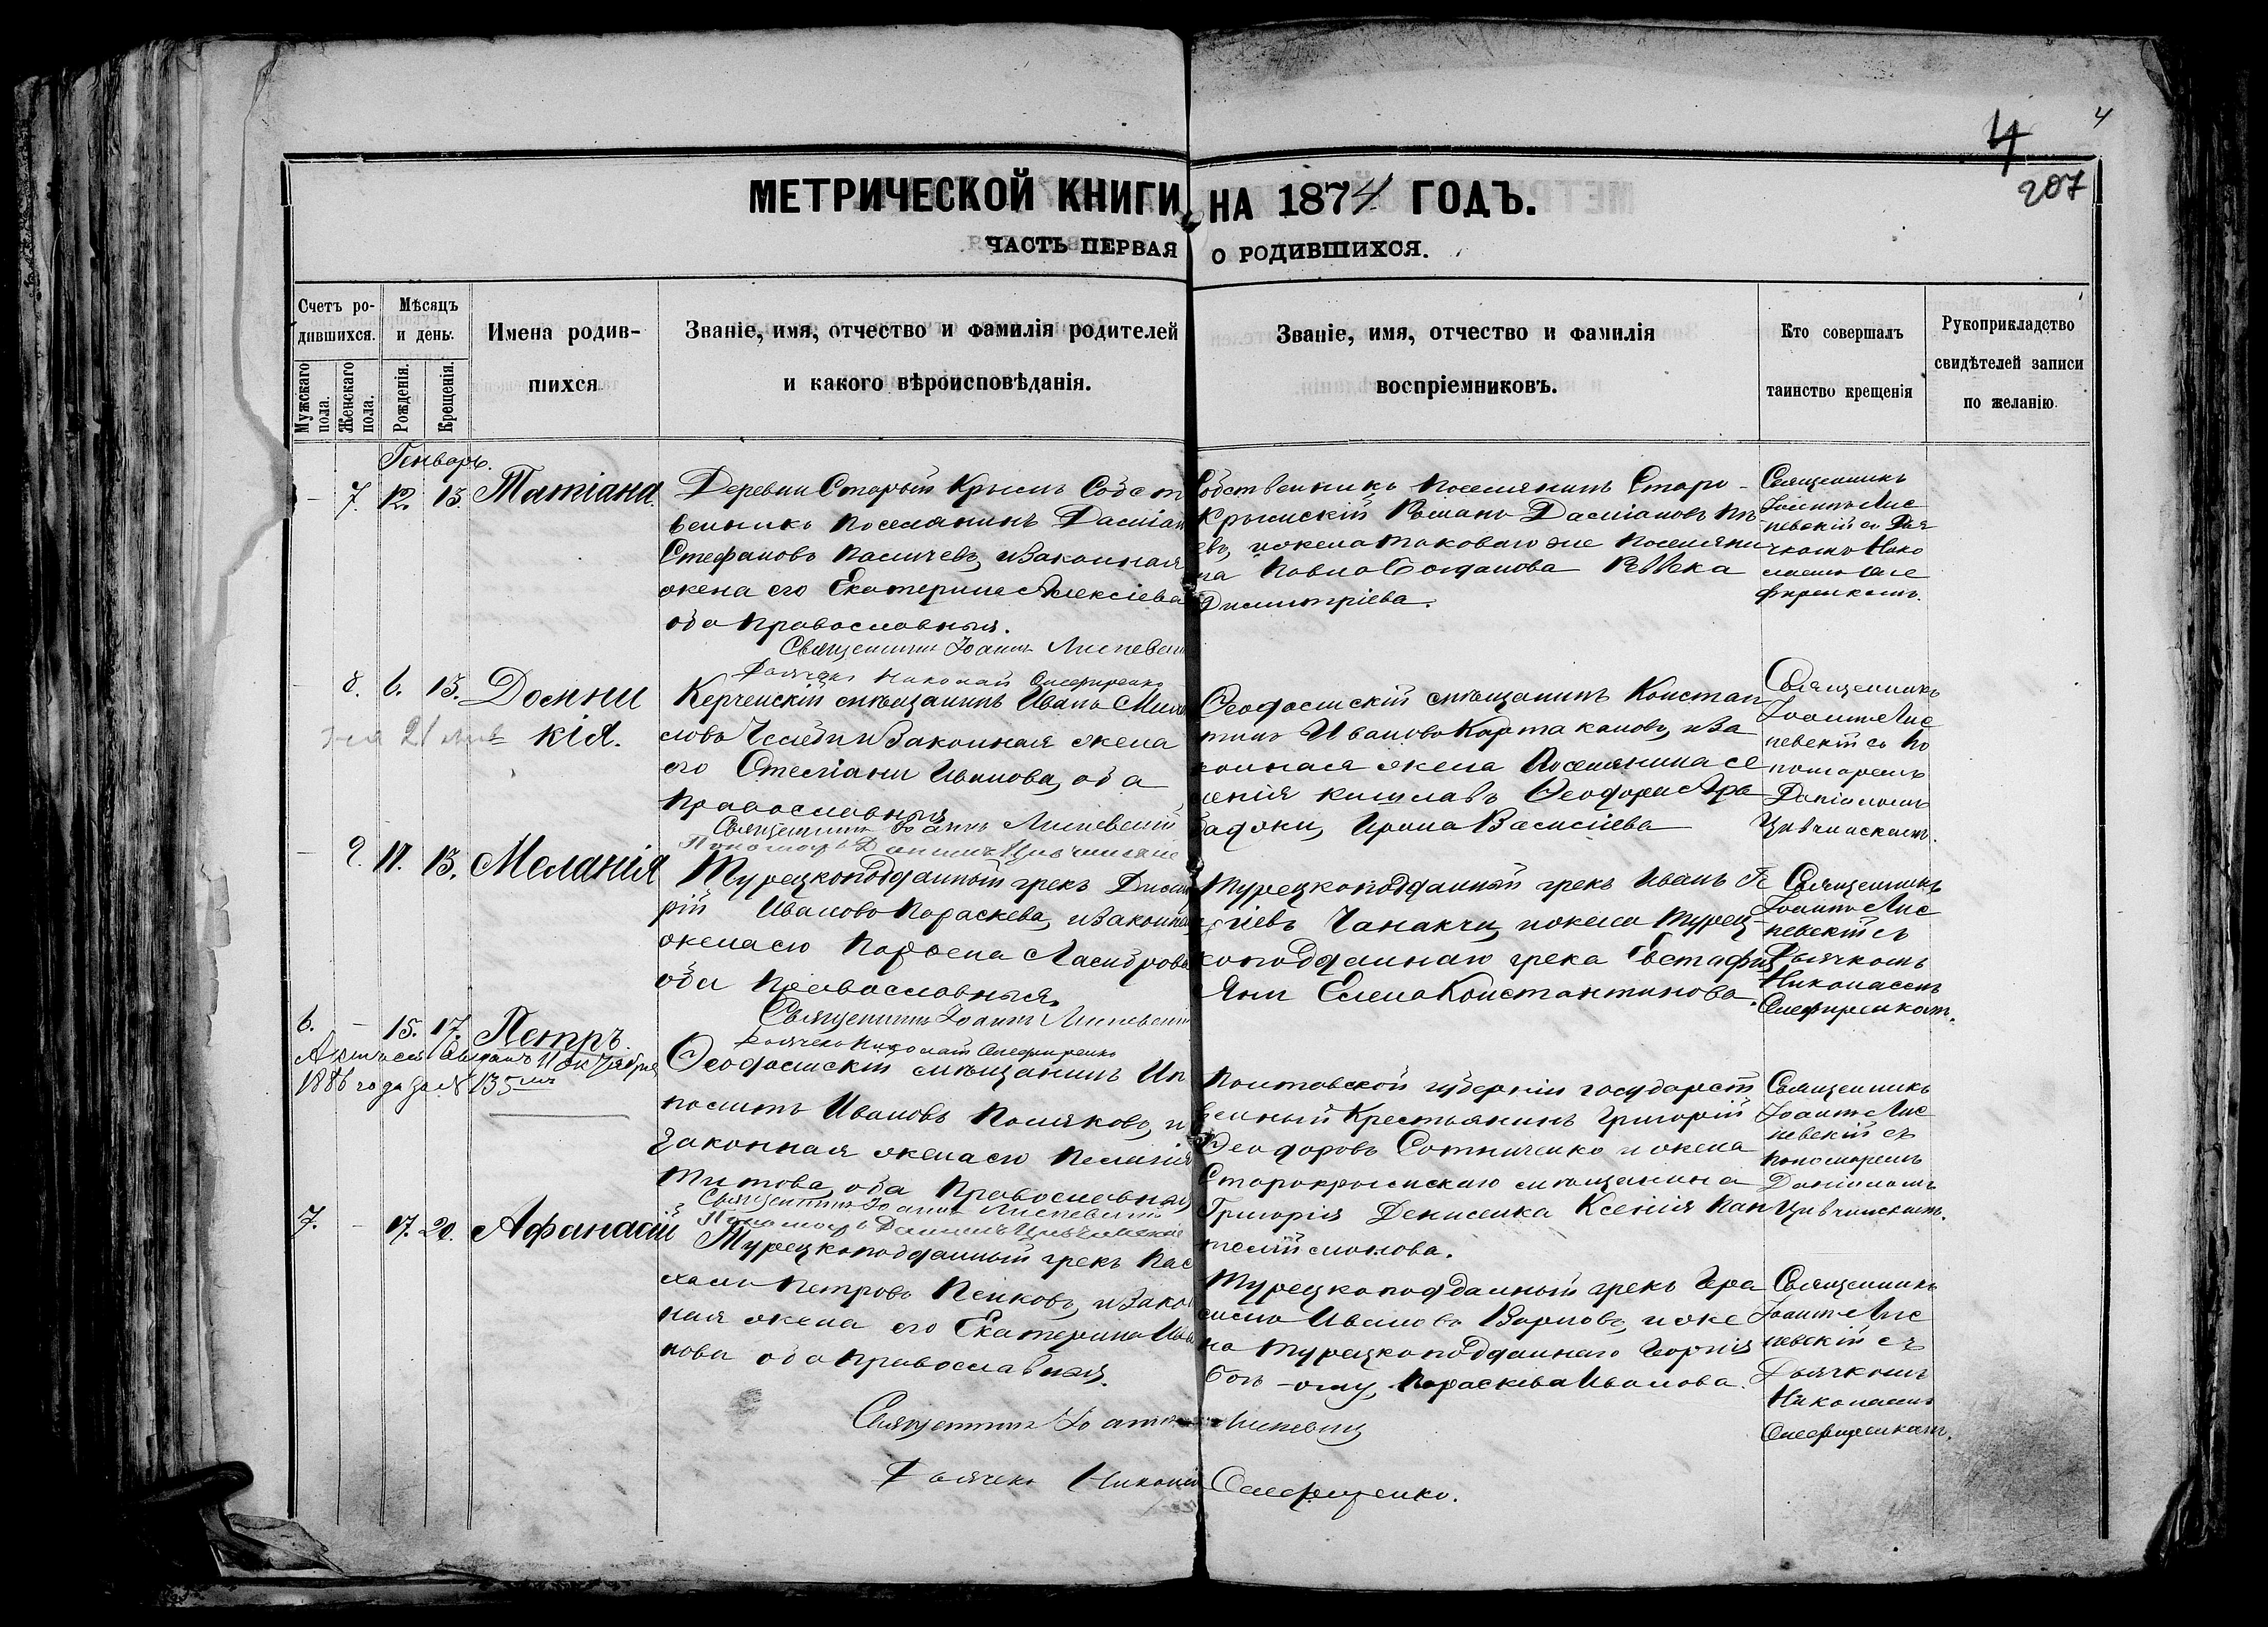 4
4
207
МЕТРИЧЕСКОЙ КНИГИ НА 1874 ГОДЪ.
ЧАСТЬ ПЕРВАЯ О РОДИВШИХСЯ.
Счетъ ро-
дившихся.
Мужскаго пола.
Женскаго пола.
Мѣсяцъ
и день.
Рожденія.
Крещенія.
Имена родив-
шихся
Званіе, имя, отчество и фамилія родителей
и какого вѣроисповѣданія.
Званіе, имя, отчество и фамилія
воспріемниковъ.
Кто совершалъ
таинство крещенія
Рукоприкладство
свидѣтелей записи
по желанію.
Генварь.
- 7. 12. 13. Татіана.
Деревни Старый Крымъ Собст
венникъ поселянинъ Даміан
Стефановъ и законная
жена его Екатерина Алексіева
оба православныя.
Священникъ Іоаннъ
Дьячекъ Николай Олефиренко
Собственникъ поселянинъ Старо-
Крымскій Романъ Даміановъ
и жена таковаго же поселяни
на Павла Богданова
Димитріева.
Священникъ
Іоаннъ Лис
невскій съ Дья
чкомъ Нико
лаемъ Оле
фиренкомъ.
- 8. 6. 13. Домни
кія.
Керченскій мѣщанинъ Иванъ
и законная жена
его Иванова, оба
православныя
Священникъ Іоаннъ
Пономарь Даніилъ
Ѳеодосійскій мѣщанинъ Констан
тинъ Ивановъ Картаканов, и за
конная жена поселянина се
ленія кишлавъ Ѳеодора Ара
баджи, Ирина Василіева
Священникъ
Іоаннъ Лис
невскій съ По
номаремъ
Даніиломъ
- 9. 11. 13. Меланія
Турецкоподданный грекъ Дими
рій Ивановъ Параскева, и законна
жена его
оба православныя.
Священникъ Іоаннъ
Дьячекъ Николай Олефиренко
Турецкоподданный грекъ Иванъ Ге
ргіевъ Чанакчи, и жена турец-
коподданнаго грека Евстафія
Яни Елена Константинова.
Священникъ
Іоаннъ Лис
невскій съ
Дьячкомъ
Николаемъ
Олефиренкомъ.
6. - 15. 17. Петръ.
11 октября
1886 года за № 135
Ѳеодосійскій мѣщанинъ Ип
политъ Ивановъ Поляковъ, и
законная жена его Пелагія
Титова, оба православныя,
Священникъ Іоаннъ
Пономарь Даніилъ
Полтавской губерніи государст
венный крестьянинъ Григорій
Ѳеодоровъ Сотниченко и жена
Старокрымскаго мѣщанина
Григорія Денисенка Ксенія Пан
телеймонова.
Священникъ
Іоаннъ Лис
невскій съ
пономаремъ
Даніиломъ
7. - 17. 20. Афанасій
Турецкоподданный грекъ Пас
халь Петровъ Пейковъ, и закон
ная жена его Екатерина Ива
нова оба православныя.
Турецкоподданный грекъ Гера
симъ Ивановъ и же
на турецкоподданнаго Георгія
Параскева Иванова.
Священникъ
Іоаннъ Лис
невскій съ
Дьячкомъ
Николаемъ
Олефиренкомъ.
Священникъ Іоаннъ
Дьячекъ Николай Олефиренко.